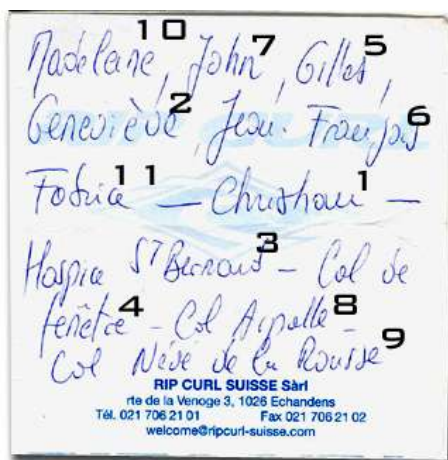 10 7 5
Madeleine, John, Gilles,
2 6
Geneviève, Jean-François
11 1
— Christian —
3
Hospice St Bernard - Col de
4 8
fenêtre - Col
9
Col Névé de la Rousse
RIP CURL
RIP CURL SUISSE Sàrl
rte de la Venoge 3, 1026 Echandens
Tél. 021 706 21 01 Fax 021 706 21 02
welcome@ripcurl-suisse.com